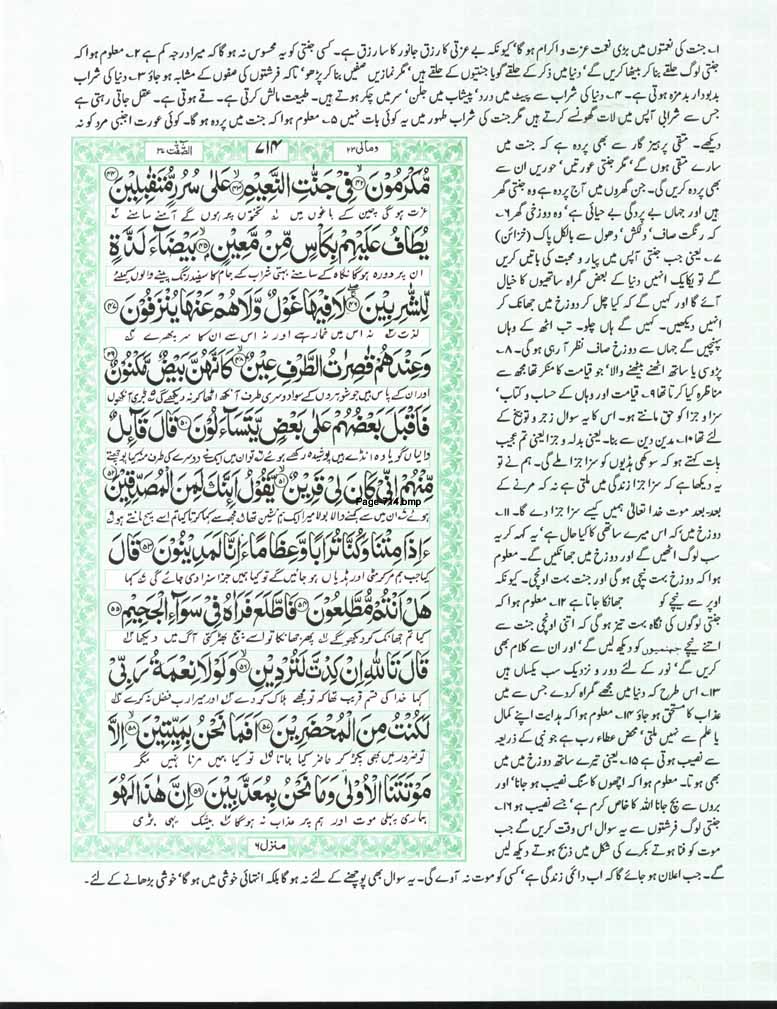 ۱۔ جنت کی نعمتوں میں بڑی نعمت عزت و اکرام ہو گا' کیونکہ بے عزتی کا رزق جانور کا سا رزق ہے۔ کسی جنتی کو یہ محسوس نہ ہو گا کہ میرا درجہ کم ہے ۲۔ معلوم ہوا کہ
جنتی لوگ حلقے بنا کر بیٹھا کریں گے' دنیا میں ذکر کے حلقے گویا جنتیوں کے حلقے ہیں' مگر نمازیں صفیں بنا کر پڑھو' تاکہ فرشتوں کی صفوں کے مشابہ ہو جاؤ ۳۔ دنیا کی شراب
بدبودار بدمزہ ہوتی ہے۔ ۴۔ دنیا کی شراب سے پیٹ میں درد' پیشاب میں جلن' سر میں چکر ہوتے ہیں۔ طبیعت مالش کرتی ہے۔ قے ہوتی ہے۔ عقل جاتی رہتی ہے
جس سے شرابی آپس میں لات گھونسے کرتے ہیں مگر جنت کی شراب طہور میں یہ کوئی بات نہیں ۵۔ معلوم ہوا کہ جنت میں پردہ ہو گا۔ کوئی عورت اجنبی مرد کو نہ
دیکھے۔ متقی پرہیز گار سے بھی پردہ ہے کہ جنت میں
سارے متقی ہوں گے' مگر جنتی عورتیں' حوریں ان سے
بھی پردہ کریں گی۔ جن گھروں میں آج پردہ ہے وہ جنتی گھر
ہیں اور جہاں بے پردگی بے حیائی ہے' وہ دوزخی گھر ۶۔
کہ رنگت صاف' دلکش' دھول سے بالکل پاک (خزائن)
۷۔ یعنی جب جنتی آپس میں پیار و محبت کی باتیں کریں
گے تو یکایک انہیں دنیا کے بعض گمراہ ساتھیوں کا خیال
آئے گا اور کہیں گے کہ کیا چل کر دوزخ میں جھانک کر
انہیں دیکھیں۔ کہیں گے ہاں چلو۔ تب اٹھ کے وہاں
پہنچیں گے جہاں سے دوزخ صاف نظر آ رہی ہو گی۔ ۸۔
پڑوسی یا ساتھ اٹھنے بیٹھنے والا' جو قیامت کا منکر تھا مجھ سے
مناظرہ کیا کرتا تھا ۹۔ قیامت اور وہاں کے حساب و کتاب'
سزا و جزا کو حق مانتے ہو۔ اس کا یہ سوال زجر و توبیخ کے
لئے تھا ۱۰۔ مدین دین سے بنا۔ یعنی بدلہ و جزا یعنی تم عجیب
بات کہتے ہو کہ سوکھی ہڈیوں کو سزا جزا ملے گی۔ ہم نے تو
یہ دیکھا ہے کہ سزا جزا زندگی میں ملتی ہے نہ کہ مرنے کے
بعد۔ بعد موت خدا تعالیٰ ہمیں کیسے سزا جزا دے گا۔ ۱۱۔
دوزخ میں' کہ اس میرے ساتھی کا کیا حال ہے' یہ کہہ کر یہ
سب لوگ اٹھیں گے اور دوزخ میں جھانکیں گے۔ معلوم
ہوا کہ دوزخ بہت نیچی ہو گی اور جنت بہت اونچی۔ کیونکہ
اوپر سے نیچے کو جھانکا جاتا ہے ۱۲۔ معلوم ہوا کہ
جنتی لوگوں کی نگاہ بہت تیز ہو گی کہ اتنی اونچی جنت سے
اتنے نیچے جہنمیوں کو دیکھ لیں گے' اور ان سے کلام بھی
کریں گے' نور کے لئے دور و نزدیک سب یکساں ہیں
۱۳۔ اس طرح کہ دنیا میں مجھے گمراہ کر دے جس سے میں
عذاب کا مستحق ہو جاؤ ۱۴۔ معلوم ہوا کہ ہدایت اپنے کمال
یا علم سے نہیں ملتی' محض عطاء رب ہے جو نبی کے ذریعہ
سے نصیب ہوتی ہے ۱۵۔ یعنی تیرے ساتھ دوزخ میں میں
بھی ہوتا۔ معلوم ہوا کہ اچھوں کا سنگ نصیب ہو جانا' اور
بروں سے بچ جانا اللہ کا خاص کرم ہے' جسے نصیب ہو ۱۶۔
جنتی لوگ فرشتوں سے یہ سوال اس وقت کریں گے جب
موت کو فنا ہوتے بکرے کی شکل میں ذبح ہوتے دیکھ لیں
گے۔ جب اعلان ہو جائے گا کہ اب دائمی زندگی ہے' کسی کو موت نہ آوے گی۔ یہ سوال بھی پوچھنے کے لئے نہ ہو گا بلکہ انتہائی خوشی میں ہو گا' خوشی بڑھانے کے لئے۔
ومالی ۲۳ ۷۱۴ الصّٰفّٰت ۳۷
مُّكْرَمُوْنَ ﴿۴۲﴾ فِيْ جَنّٰتِ النَّعِيْمِ ﴿۴۳﴾ عَلٰى سُرُرٍ مُّتَقٰبِلِيْنَ ﴿۴۴﴾
عزت ہوگی چین کے باغوں میں تختوں پر ہوں گے آمنے سامنے
يُطَافُ عَلَيْهِمْ بِكَاْسٍ مِّنْ مَّعِيْنٍ ﴿۴۵﴾ بَيْضَآءَ لَذَّةٍ
ان پر دورہ ہوگا نگاہ کے سامنے بہتی شراب کے جام کا سفید رنگ پینے والوں کیلئے
لِّلشّٰرِبِيْنَ ﴿۴۶﴾ لَا فِيْهَا غَوْلٌ وَّلَا هُمْ عَنْهَا يُنْزَفُوْنَ ﴿۴۷﴾
لذت نہ اس میں خمار ہے اور نہ اس سے ان کا سر پھرے
وَعِنْدَهُمْ قٰصِرٰتُ الطَّرْفِ عِيْنٌ ﴿۴۸﴾ كَاَنَّهُنَّ بَيْضٌ مَّكْنُوْنٌ ﴿۴۹﴾
اور ان کے پاس ہیں جو شوہروں کے سوا دوسری طرف آنکھ اٹھا کر نہ دیکھیں گی بڑی آنکھوں
فَاَقْبَلَ بَعْضُهُمْ عَلٰى بَعْضٍ يَّتَسَآءَلُوْنَ ﴿۵۰﴾ قَالَ قَآئِلٌ
والیاں گویا وہ انڈے ہیں پوشیدہ رکھے ہوئے تو ان میں ایک نے دوسرے کی طرف منہ کیا پوچھتے
مِّنْهُمْ اِنِّيْ كَانَ لِيْ قَرِيْنٌ ﴿۵۱﴾ يَّقُوْلُ اَئِنَّكَ لَمِنَ الْمُصَدِّقِيْنَ ﴿۵۲﴾
Page 714.bmp
ہوئے ان میں سے کہنے والا بولا میرا ایک ہم نشین تھا مجھ سے کہا کرتا کیا تم اسے سچ مانتے ہو
ءَاِذَا مِتْنَا وَكُنَّا تُرَابًا وَّعِظَامًا ءَاِنَّا لَمَدِيْنُوْنَ ﴿۵۳﴾ قَالَ
کیا جب ہم مر کر مٹی اور ہڈیاں ہو جائیں گے تو کیا ہمیں جزا سزا دی جائے گی کہا
هَلْ اَنْتُمْ مُّطَّلِعُوْنَ ﴿۵۴﴾ فَاطَّلَعَ فَرَاٰهُ فِيْ سَوَآءِ الْجَحِيْمِ ﴿۵۵﴾
کیا تم جھانک کر دیکھو گے پھر جھانکا تو اسے بیچ بھڑکتی آگ میں دیکھا
قَالَ تَاللّٰهِ اِنْ كِدْتَّ لَتُرْدِيْنِ ﴿۵۶﴾ وَلَوْلَا نِعْمَةُ رَبِّيْ
کہا خدا کی قسم قریب تھا کہ تو مجھے ہلاک کر دے اور میرا رب فضل نہ کرے
لَكُنْتُ مِنَ الْمُحْضَرِيْنَ ﴿۵۷﴾ اَفَمَا نَحْنُ بِمَيِّتِيْنَ ﴿۵۸﴾ اِلَّا
تو ضرور میں بھی پکڑ کر حاضر کیا جاتا تو کیا ہمیں مرنا نہیں مگر
مَوْتَتَنَا الْاُوْلٰى وَمَا نَحْنُ بِمُعَذَّبِيْنَ ﴿۵۹﴾ اِنَّ هٰذَا لَهُوَ
ہماری پہلی موت اور ہم پر عذاب نہ ہوگا بیشک یہی بڑی
منزل ۶